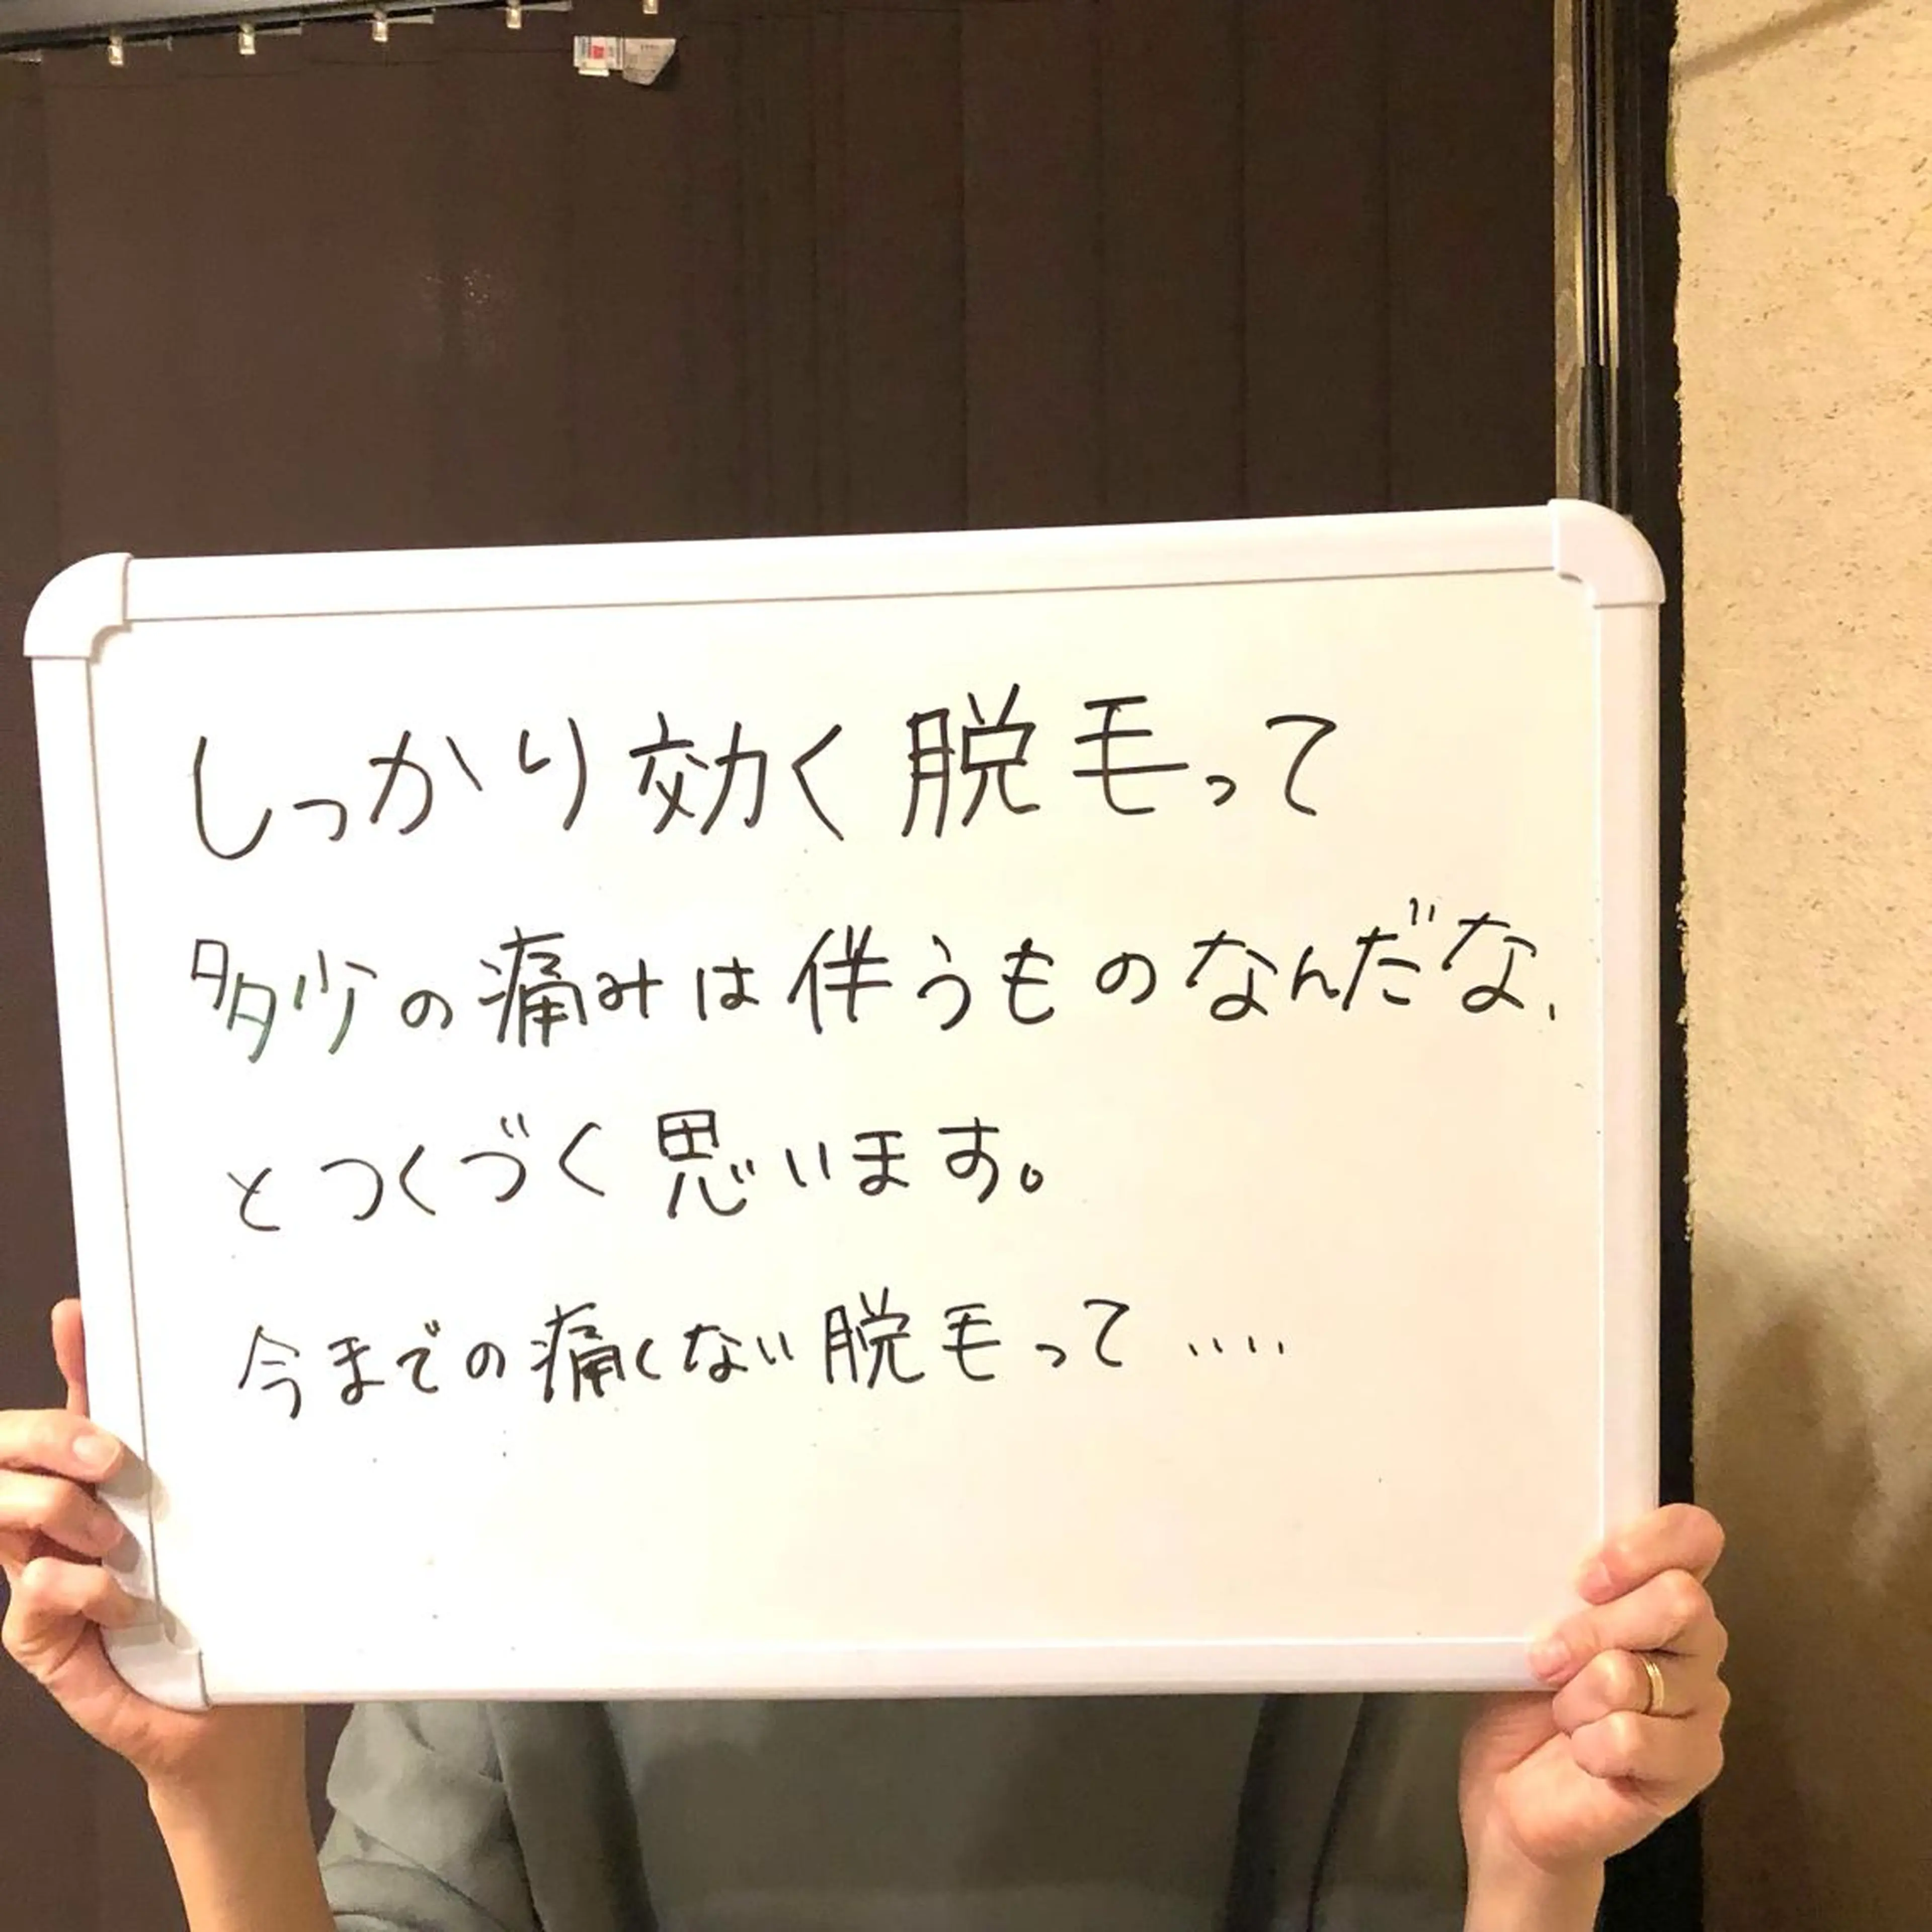 しっかり効く脱毛って
多少の痛みは伴うものなんだな、
とつくづく思います。
今までの痛くない脱毛って....